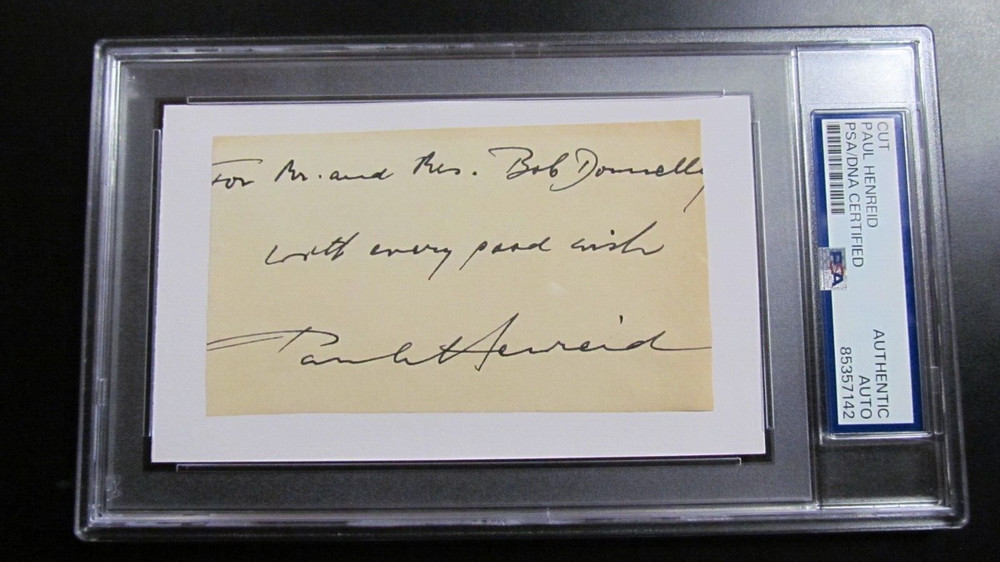 For Mr. and Mrs. Bob Donnelly
with every good wish
Paul Henreid
CUT
PAUL HENREID
PSA/DNA CERTIFIED
PSA
AUTHENTIC
AUTO
85357142